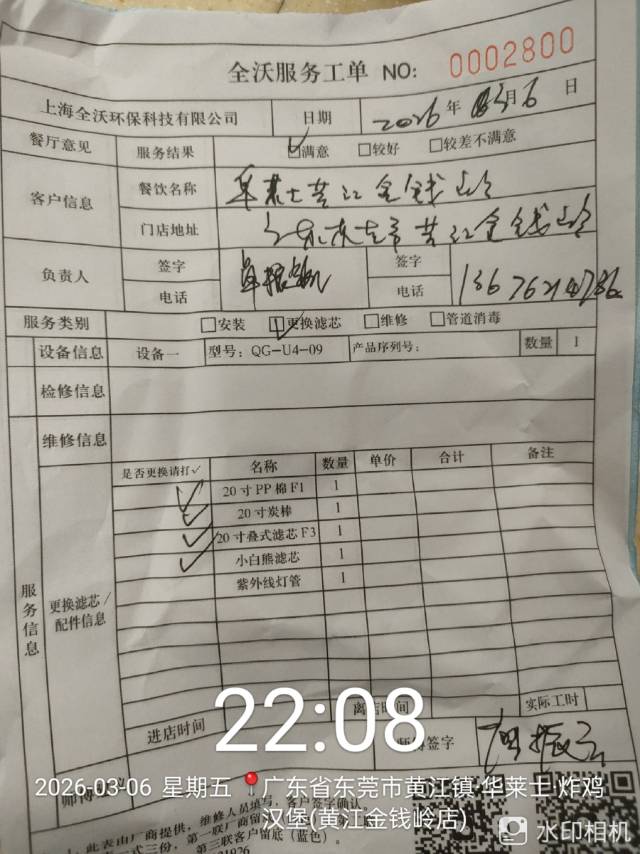 全沃服务工单 NO: 0002800
上海全沃环保科技有限公司 日期 2026年 03月 6 日
餐厅意见 服务结果 ☑满意 □较好 □较差不满意
客户信息 餐饮名称 华莱士黄江金钱岭
门店地址 广东东莞市黄江金钱岭
负责人 签字 签字
电话 电话
服务类别 □安装 ☑更换滤芯 □维修 □管道消毒
设备信息 设备一 型号: QG-U4-09 产品序列号: 数量 1
检修信息
维修信息
服务信息
更换滤芯/配件信息
是否更换请打✓ 名称 数量 单价 合计 备注
✓ 20寸PP棉F1 1
✓ 20寸炭棒 1
✓ 20寸叠式滤芯F3 1
✓ 小白熊滤芯 1
紫外线灯管 1
进店时间 离店时间 实际工时
22:08
师傅签字
2026-03-06 星期五 广东省东莞市黄江镇·华莱士·炸鸡
汉堡(黄江金钱岭店)
此表由厂商提供，维修人员填写，客户签字确认。
第三联客户留底（蓝色）。
水印相机